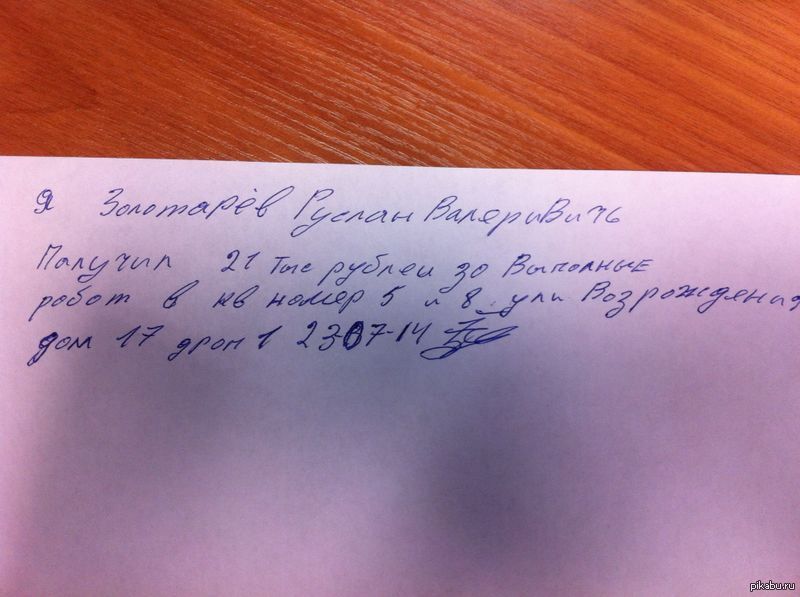 Я Золотарёв Руслан Валеривичь
Палучил 21 тыс рублеи зо Выполные
робот в кв номер 5 и 8 ули Возрождения
дом 17 дроп 1 2307-14
pikabu.ru